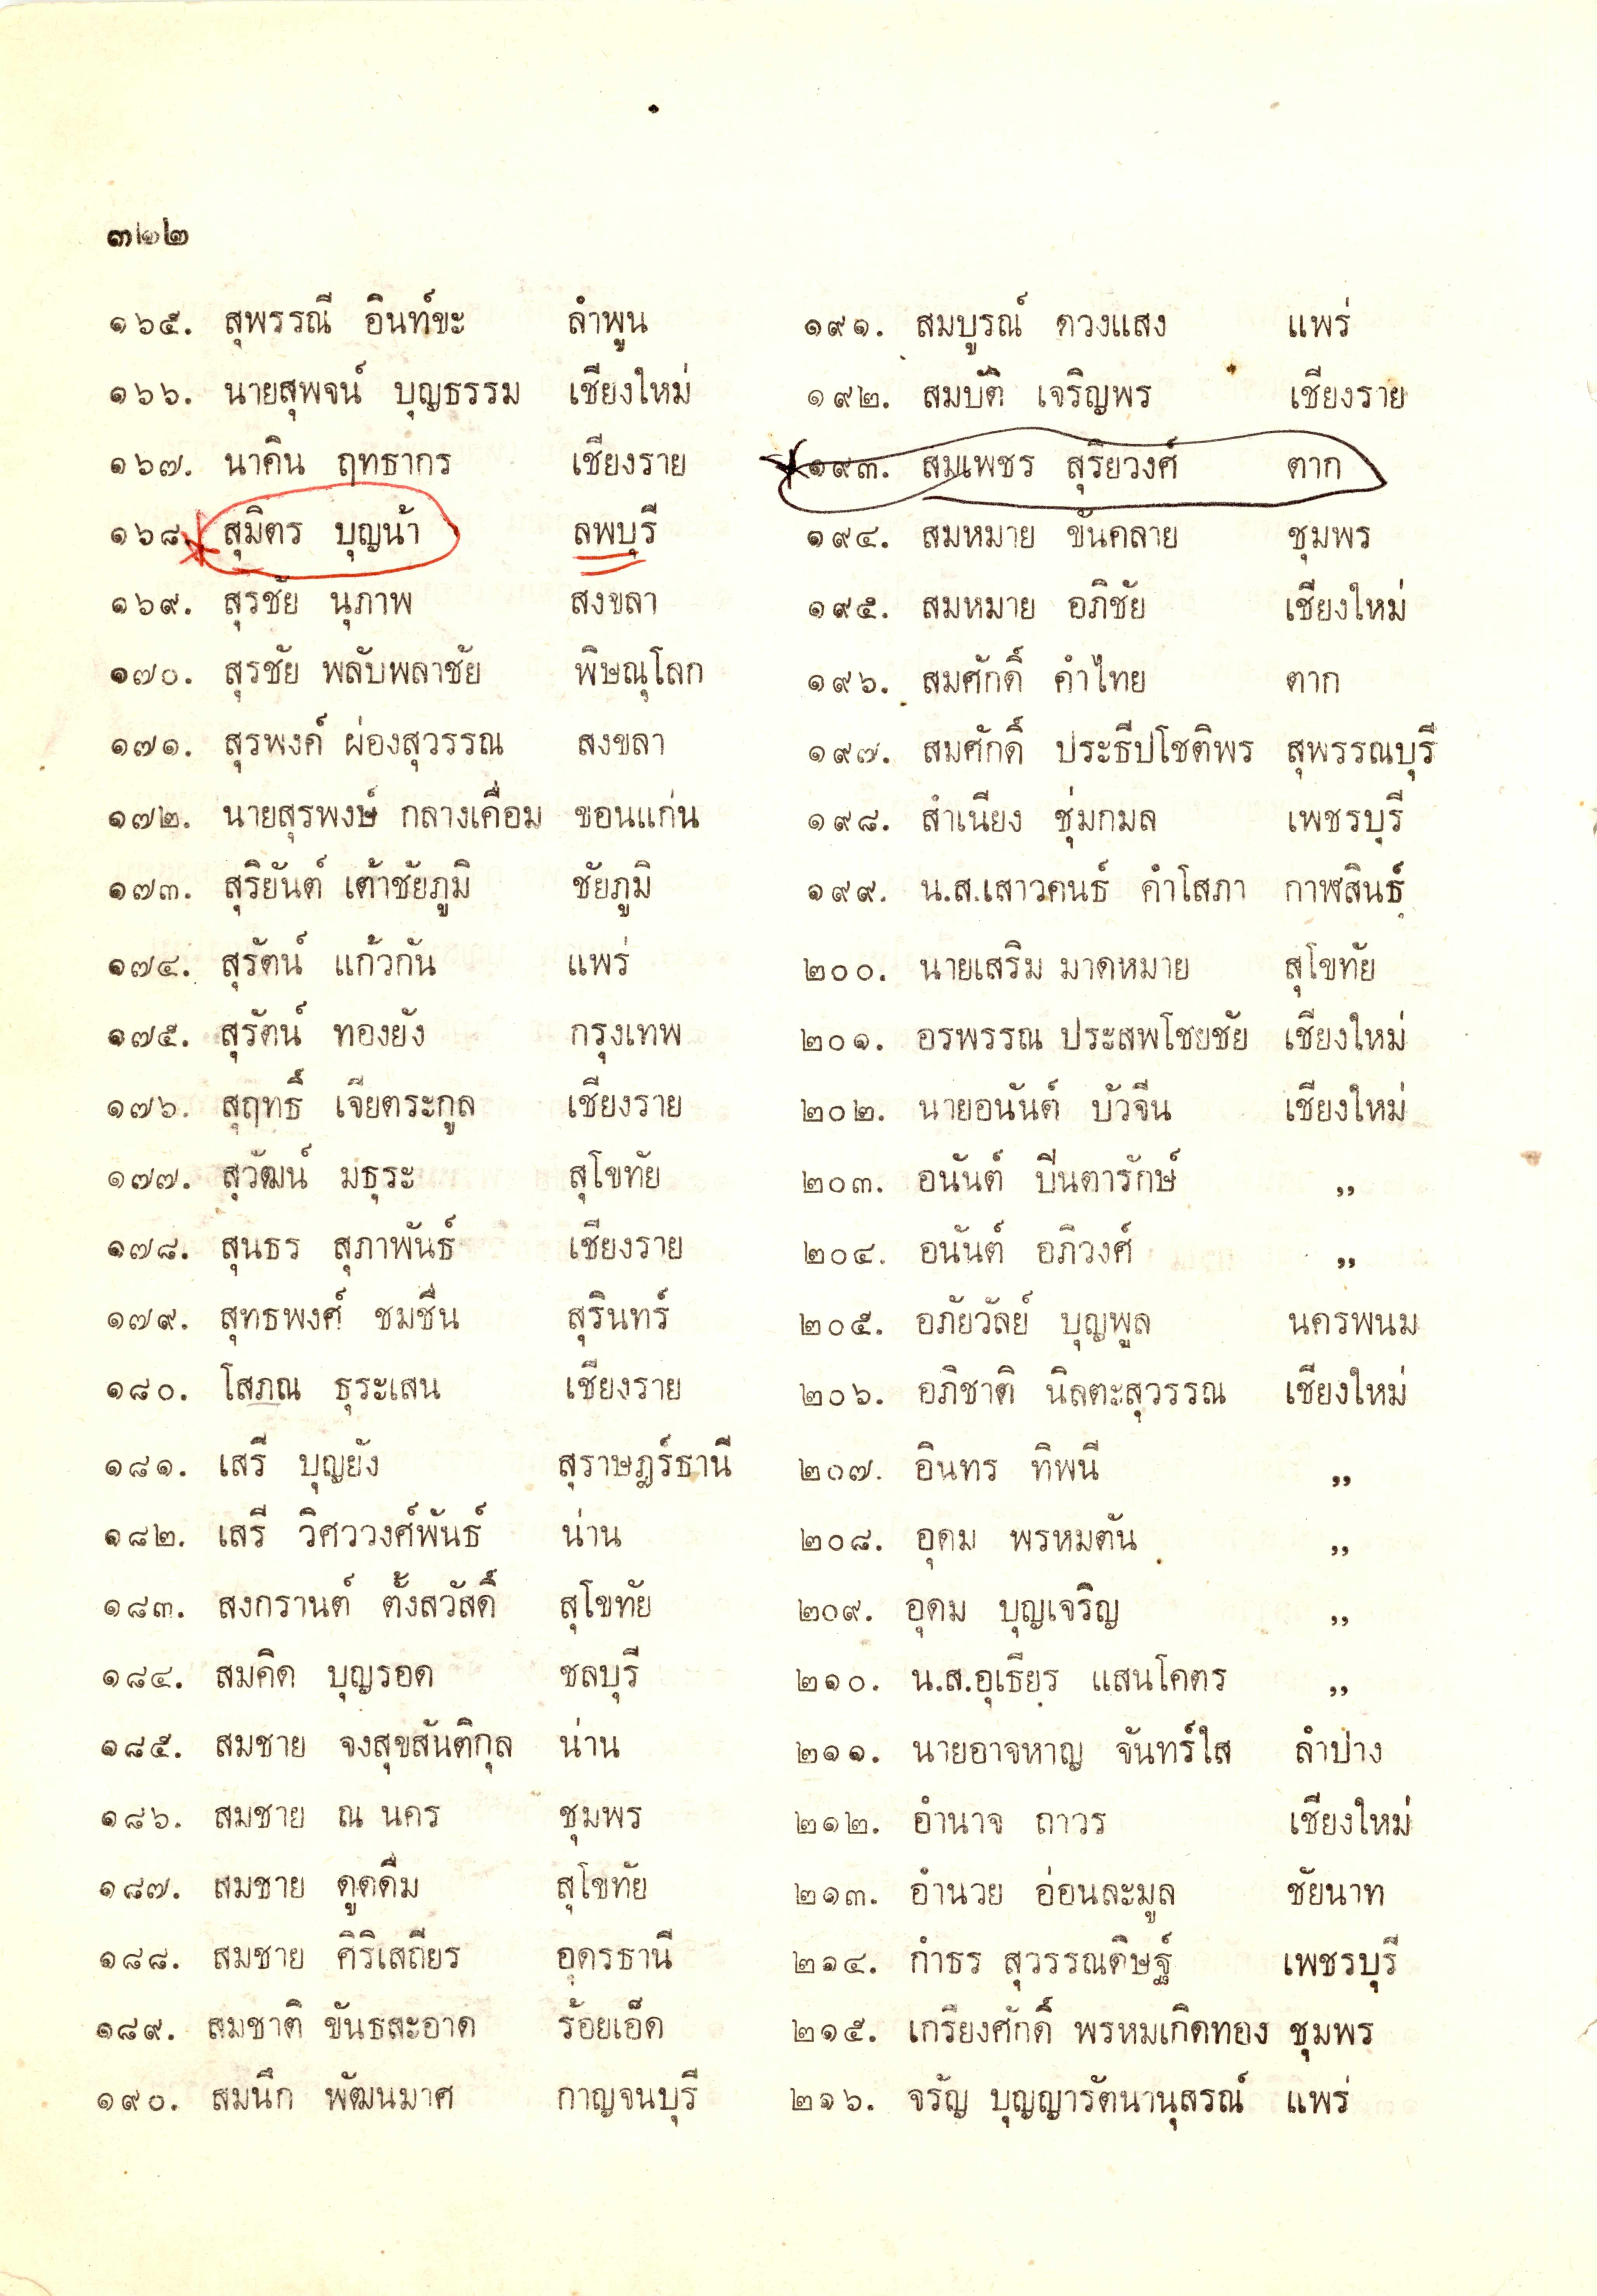 ๑๖๕. สุพรรณี อินท์ขะ ลำพูน
๑๖๖. นายสุพจน์ บุญธรรม เชียงใหม่
๑๖๗. นาคิน ฤทธากร เชียงราย
๑๖๘. สุมิตร บุญน้ำ ลพบุรี
๑๖๙. สุรชัย นุภาพ สงขลา
๑๗๐. สุรชัย พลับพลาชัย พิษณุโลก
๑๗๑. สุรพงค์ ผ่องสุวรรณ สงขลา
๑๗๒. นายสุรพงษ์ กลางเคื่อม ขอนแก่น
๑๗๓. สุริยันต์ เต้าชัยภูมิ ชัยภูมิ
๑๗๔. สุรัตน์ แก้วกัน แพร่
๑๗๕. สุรัตน์ ทองยัง กรุงเทพ
๑๗๖. สุฤทธิ์ เจียตระกูล เชียงราย
๑๗๗. สุวัฒน์ มธุระ สุโขทัย
๑๗๘. สุนธร สุภาพันธ์ เชียงราย
๑๗๙. สุทธพงศ์ ชมชื่น สุรินทร์
๑๘๐. โสภณ ธุระเสน เชียงราย
๑๘๑. เสรี บุญยัง สุราษฎร์ธานี
๑๘๒. เสรี วิศววงศ์พันธ์ น่าน
๑๘๓. สงกรานต์ ตั้งสวัสดิ์ สุโขทัย
๑๘๔. สมคิด บุญรอด ชลบุรี
๑๘๕. สมชาย จงสุขสันติกุล น่าน
๑๘๖. สมชาย ณ นคร ชุมพร
๑๘๗. สมชาย ดูดดื่ม สุโขทัย
๑๘๘. สมชาย ศิริเสถียร อุดรธานี
๑๘๙. สมชาติ ขันธสะอาด ร้อยเอ็ด
๑๙๐. สมนึก พัฒนมาศ กาญจนบุรี
๑๙๑. สมบูรณ์ ดวงแสง แพร่
๑๙๒. สมบัติ เจริญพร เชียงราย
๑๙๓. สมเพชร สุริยวงศ์ ตาก
๑๙๔. สมหมาย ขันคลาย ชุมพร
๑๙๕. สมหมาย อภิชัย เชียงใหม่
๑๙๖. สมศักดิ์ คำไทย ตาก
๑๙๗. สมศักดิ์ ประธีปโชติพร สุพรรณบุรี
๑๙๘. สำเนียง ชุ่มกมล เพชรบุรี
๑๙๙. น.ส.เสาวคนธ์ คำโสภา กาฬสินธุ์
๒๐๐. นายเสริม มาดหมาย สุโขทัย
๒๐๑. อรพรรณ ประสพโชยชัย เชียงใหม่
๒๐๒. นายอนันต์ บัวจีน เชียงใหม่
๒๐๓. อนันต์ ปีนตารักษ์ ,,
๒๐๔. อนันต์ อภิวงศ์ ,,
๒๐๕. อภัยวัลย์ บุญพูล นครพนม
๒๐๖. อภิชาติ นิลตะสุวรรณ เชียงใหม่
๒๐๗. อินทร ทิพนี ,,
๒๐๘. อุดม พรหมตัน ,,
๒๐๙. อุดม บุญเจริญ ,,
๒๑๐. น.ส.อุเธียร แสนโคตร ,,
๒๑๑. นายอาจหาญ จันทร์ใส ลำปาง
๒๑๒. อำนาจ ถาวร เชียงใหม่
๒๑๓. อำนวย อ่อนละมูล ชัยนาท
๒๑๔. กำธร สุวรรณดิษฐ์ เพชรบุรี
๒๑๕. เกรียงศักดิ์ พรหมเกิดทอง ชุมพร
๒๑๖. จรัญ บุญญารัตนานุสรณ์ แพร่